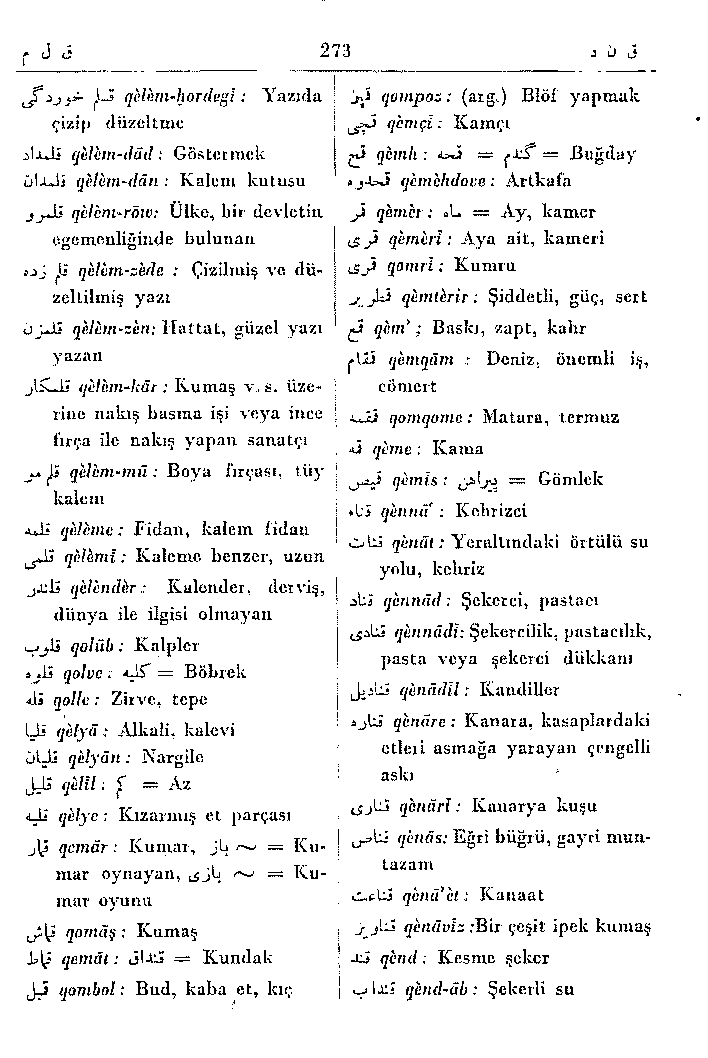 ق ل م 273 ق ن د
قلم خوردگی qèlèm-hordegī : Yazıda
çizip düzeltme
قلمداد qèlèm-dād : Göstermek
قلمدان qèlèm-dān : Kalem kutusu
قلمرو qèlèm-rōw: Ülke, bir devletin
egemenliğinde bulunan
قلم زده qèlèm-zède : Çizilmiş ve dü-
zeltilmiş yazı
قلمزن qèlèm-zèn: Hattat, güzel yazı
yazan
قلمکار qèlèm-kār : Kumaş v. s. üze-
rine nakış basma işi veya ince
fırça ile nakış yapan sanatçı
قلم مو qèlèm-mū : Boya fırçası, tüy
kalem
قلمه qèlème : Fidan, kalem fidan
قلمی qèlèmī : Kaleme benzer, uzun
قلندر qèlèndèr : Kalender, derviş,
dünya ile ilgisi olmayan
قلوب qolūb : Kalpler
قلوه qolve : کلیه = Böbrek
قله qolle : Zirve, tepe
قلیا qèlyā : Alkali, kalevi
قلیان qèlyān : Nargile
قلیل qèlīl : کم = Az
قلیه qèlye : Kızarmış et parçası
قمار qemār : Kumar, باز ~ = Ku-
mar oynayan, بازی ~ = Ku-
mar oyunu
قماش qomāş : Kumaş
قماط qemāt : قنداق = Kundak
قمبل qombol : Bud, kaba et, kıç
قمپز qompoz : (arg.) Blöf yapmak
قمچی qèmçī : Kamçı
قمح qèmh : قمحه = گندم = Buğday
قمحدوه qèmèhdove : Artkafa
قمر qèmèr : ماه = Ay, kamer
قمری qèmèrī : Aya ait, kameri
قمری qomrī : Kumru
قمطریر qèmtèrīr : Şiddetli, güç, sert
قمع qèm' : Baskı, zapt, kahr
قمقام qèmqām : Deniz, önemli iş,
cömert
قمقمه qomqome : Matara, termuz
قمه qème : Kama
قمیص qèmīs : پیراهن = Gömlek
قناء qènnā' : Kehrizci
قنات qènāt : Yeraltındaki örtülü su
yolu, kehriz
قناد qènnād : Şekerci, pastacı
قنادی qènnādī: Şekercilik, pastacılık,
pasta veya şekerci dükkanı
قنادیل qènādīl : Kandiller
قناره qènāre : Kanara, kasaplardaki
etleri asmağa yarayan çengelli
askı
قناری qènārī : Kanarya kuşu
قناس qènās: Eğri büğrü, gayri mun-
tazam
قناعت qènā'èt : Kanaat
قناویز qènāvīz :Bir çeşit ipek kumaş
قند qènd : Kesme şeker
قنداب qènd-āb : Şekerli su